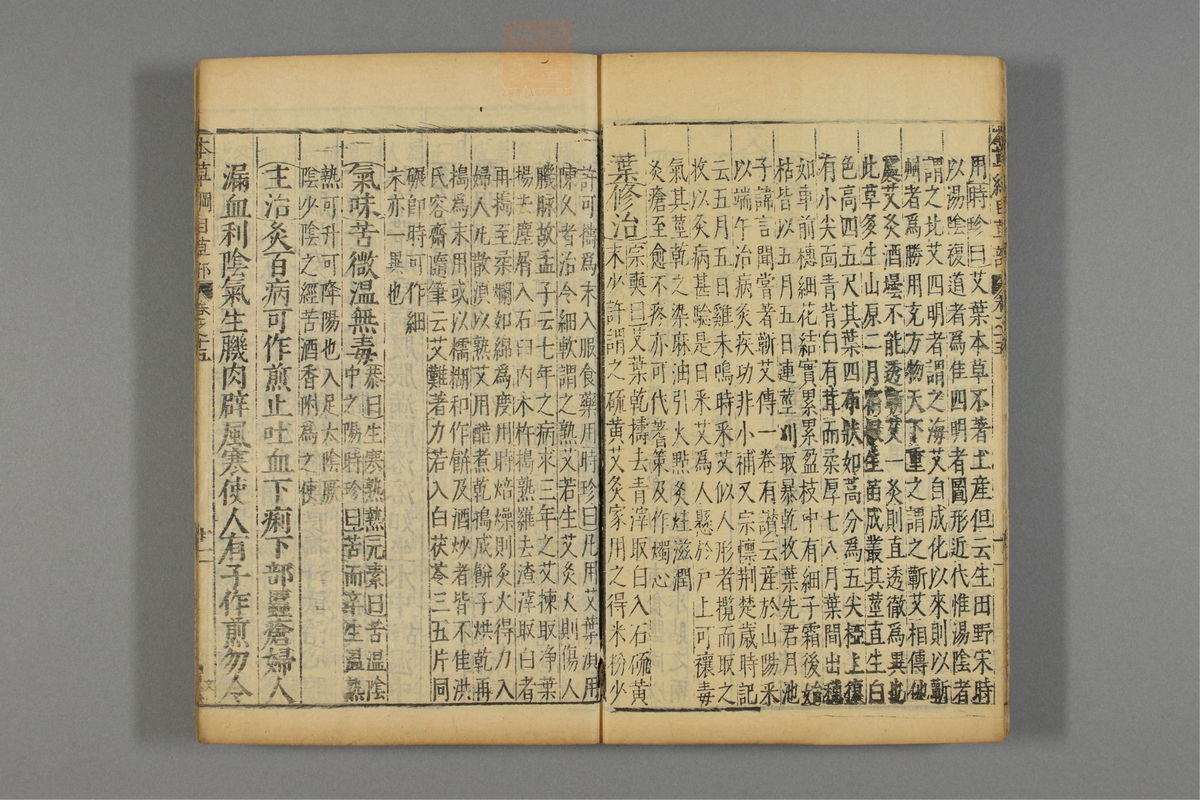 用時珍曰艾葉本草不著土産但云生田野宋時
以湯陰複道者爲佳四明者圖形近代惟湯陰者
謂之北艾四明者謂之海艾自成化以來則以蘄
州者爲勝用充方物天下重之謂之蘄艾相傳他
處艾灸酒壜不能透蘄艾一灸則直透徹爲異也
此草多生山原二月宿根生苗成叢其莖直生白
色高四五尺其葉四布狀如蒿分爲五尖椏上復
有小尖面青背白有茸而柔厚七八月葉間出穗
如車前穗細花結實累累盈枝中有細子霜後始
枯皆以五月五日連莖刈取暴乾收葉先君月池
子諱言聞嘗著蘄艾傳一卷有讃云産於山陽采
以端午治病灸疾功非小補又宗懍荆楚歲時記
云五月五日雞未鳴時采艾似人形者攬而取之
收以灸病甚驗是日采艾爲人懸於户上可禳毒
氣其莖乾之染麻油引火點灸炷滋潤
灸瘡至愈不疼亦可代蓍策及作燭心
葉修治宗奭曰艾葉乾擣去青滓取白入石硫黄
末少許謂之硫黄艾灸家用之得米粉少
許可擣爲末入服食藥用時珍曰凡用艾葉湏用
陳久者治令細軟謂之熟艾若生艾灸火則傷人
肌脉故孟子云七年之病求三年之艾揀取净葉
揚去塵屑入石臼内木杵擣熟羅去渣滓取白者
再擣至柔爛如綿爲度用時焙燥則灸火得力入
婦人丸散湏以熟艾用醋煮乾擣成餅子烘乾再
擣爲末用或以糯糊和作餅及酒炒者皆不佳洪
氏容齋隨筆云艾難著力若入白茯苓三五片同
碾卽時可作細
末亦一異也
氣味苦微温無毒恭曰生寒熟熱元素曰苦温陰
中之陽時珍曰苦而辛生温熟
熱可升可降陽也入足太陰厥
陰少陰之經苦酒香附爲之使
主治灸百病可作煎止吐血下痢下部䘌瘡婦人
漏血利陰氣生肌肉辟風寒使人有子作煎勿令
本草綱目草部 卷之十五